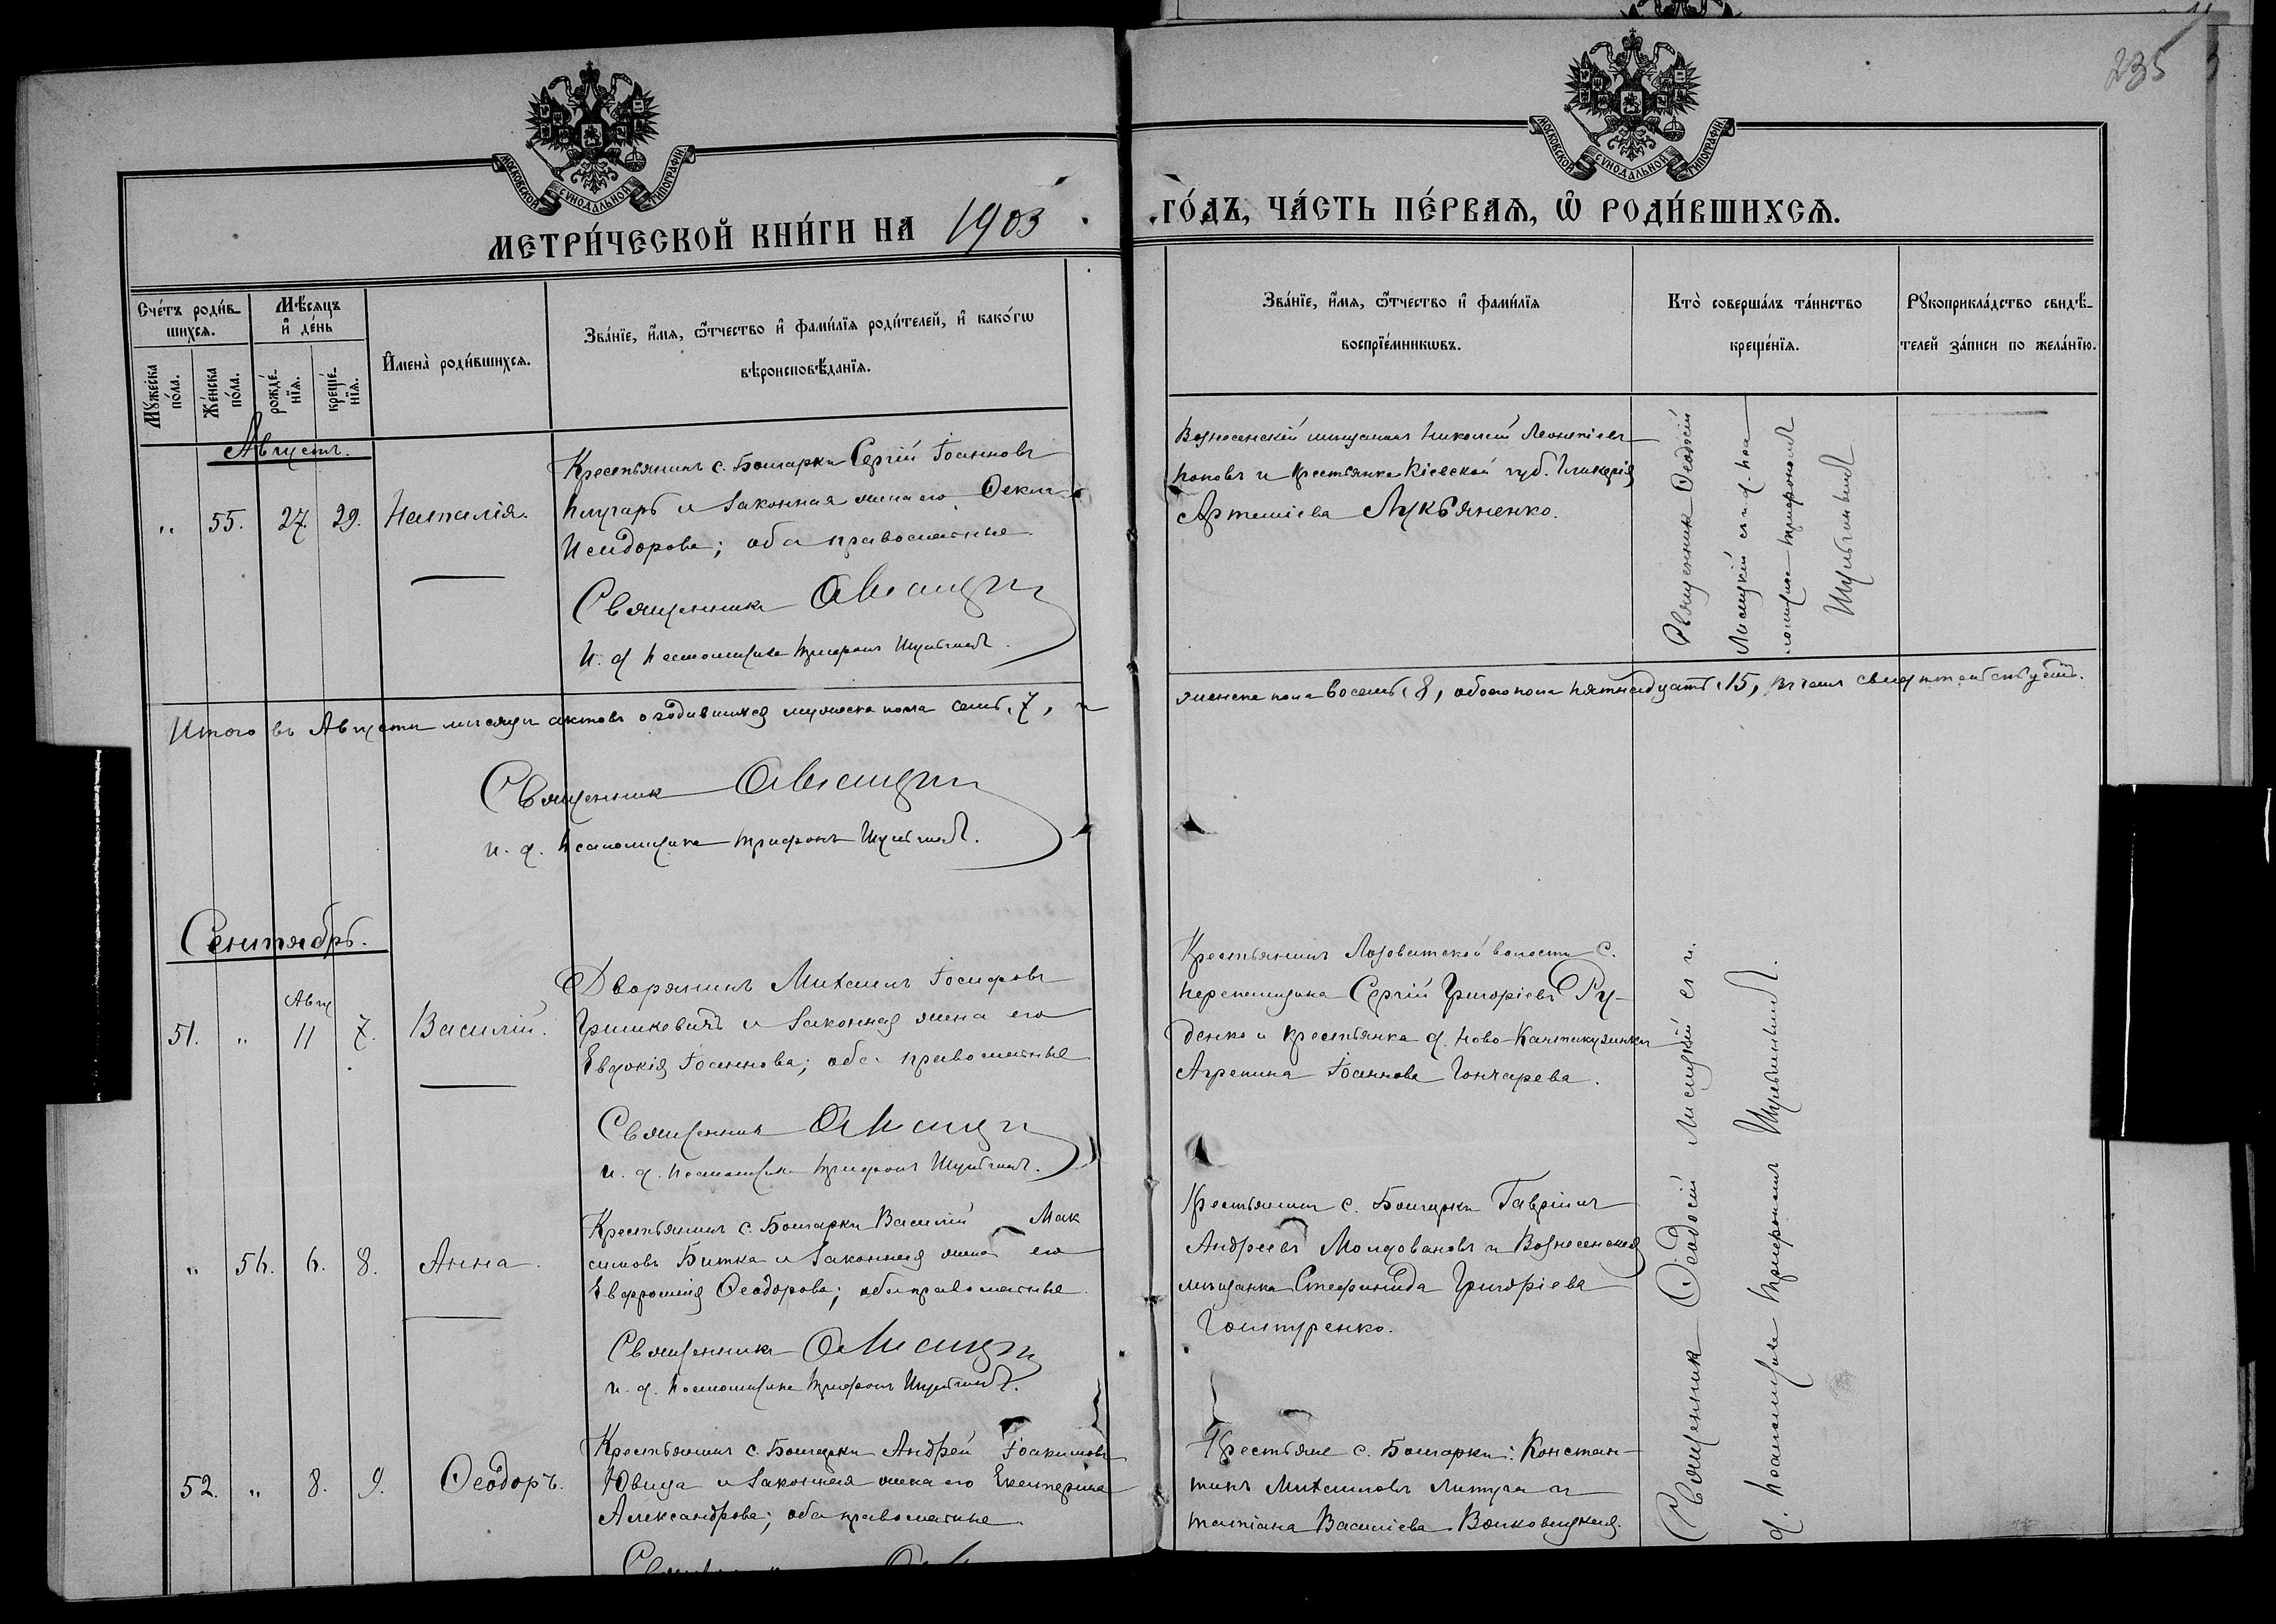 235
МОСКОВСКОЙ СУНОДАЛЬНОЙ ТИПОГРАФІИ
МОСКОВСКОЙ СУНОДАЛЬНОЙ ТИПОГРАФІИ
МЕТРИ́ЧЕСКОЙ КНИ́ГИ НА 1903
ГО́ДЪ, ЧА́СТЬ ПЕ́РВАѦ, Ѡ҆ РОДИ́ВШИХСѦ.
Сче́тъ роди́в-
шихсѧ.
Мꙋ́жеска
по́ла.
Же́нска
по́ла.
Мѣ́сѧцъ
и҆ де́нь
рожде́-
нїѧ.
креще́-
нїѧ.
И҆мена̀ роди́вшихсѧ.
Зва́нїе, и҆́мѧ, ѻ҆́тчество и҆ фами́лїѧ роди́телей, и҆ како́гѡ
вѣроисповѣ́данїѧ.
Зва́нїе, и҆́мѧ, ѻ҆́тчество и҆ фами́лїѧ
воспрїе́мникѡвъ.
Кто̀ соверша́лъ та́инство
креще́нїѧ.
Рꙋкоприкла́дство свидѣ́-
телей за́писи по жела́нїю.
Августъ.
„ 55. 27. 29. Наталія.
Крестьянинъ с. Болгарки Сергій Іоанновъ
Плугарь и законная жена его Ѳекла
Исидорова; оба православные.
Священникъ Ѳ Лисицкій
И. д. псаломщика Трифонъ
Вознесенскій мѣщанинъ Николай Леонтіевъ
Поповъ и крестьянка Кіевской губ. Гликерія
Артеміева Лукьяненко.
Священникъ Ѳеодосій
Лисицкій съ и. д. пса
ломщика Трифономъ
Итого въ Августѣ мѣсяцѣ актовъ о родившихся мужеска пола семь, 7, и
женска пола восемь, 8, обоего пола пятнадцать, 15, въ чемъ свидѣтельствуемъ.
Священникъ Ѳ Лисицкій
и. д. псаломщика Трифонъ
Сентябрь.
Авг
51. „ 11 7. Василій.
Дворянинъ Михаилъ Іосифовъ
Гришкевичъ и законная жена его
Евдокія Іоаннова; оба православные
Священникъ Ѳ Лисицкій
и. д. псаломщика Трифонъ
Крестьянинъ Лозоватской волости с.
Перепелицына Сергій Григоріевъ Ру-
денко и крестьянка д. Ново-Кантакузинки
Агрепина Іоаннова Гончарева.
„ 56. 6. 8. Анна.
Крестьянинъ с. Болгарки Василій Мак
симовъ Битка и законная жена его
Евфросинія Ѳеодорова; оба православные.
Священникъ Ѳ Лисицкій
и. д. псаломщика Трифонъ
Крестьянинъ с. Болгарки Гавріилъ
Андреевъ Молдовановъ и Вознесенская
мѣщанка Стефанида Григоріева
52. „ 8. 9. Ѳеодоръ.
Крестьянинъ с. Болгарки Андрей Іоакимовъ
Ювица и законная жена его Екатерина
Александрова; оба православные.
Крестьяне с. Болгарки: Констан-
тинъ Михаиловъ Литуга и
Татіана Василіева Волковицкая.
Священникъ Ѳеодосій Лисицкій съ и.
д. псаломщика Трифономъ